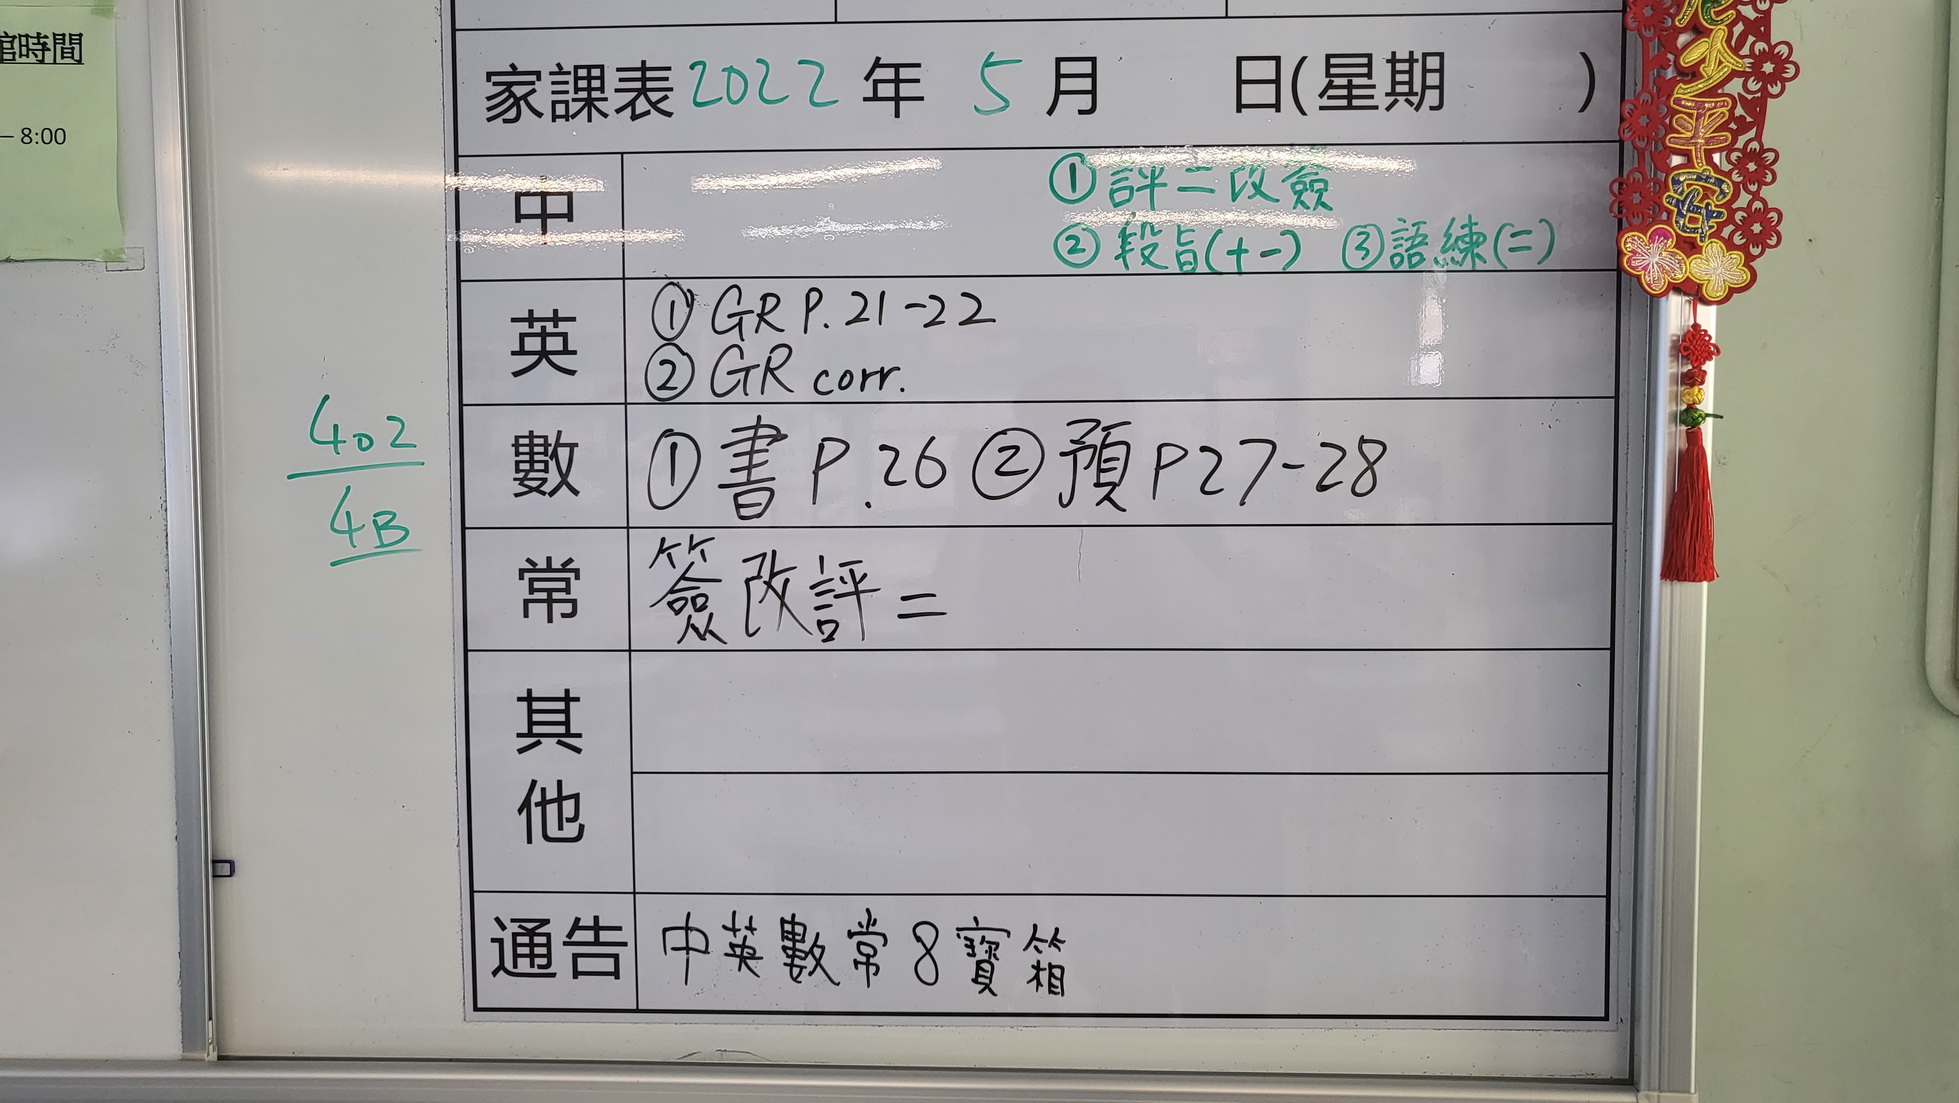 館時間
– 8:00
家課表 2022 年 5 月 日(星期 )
中
①評二改簽
②段旨(十一) ③語練(二)
英
① GR P.21-22
② GR corr.
數
①書 P.26 ②預 P27-28
常
簽改評二
其他
通告
中英數常8寶箱
402
4B
少平安